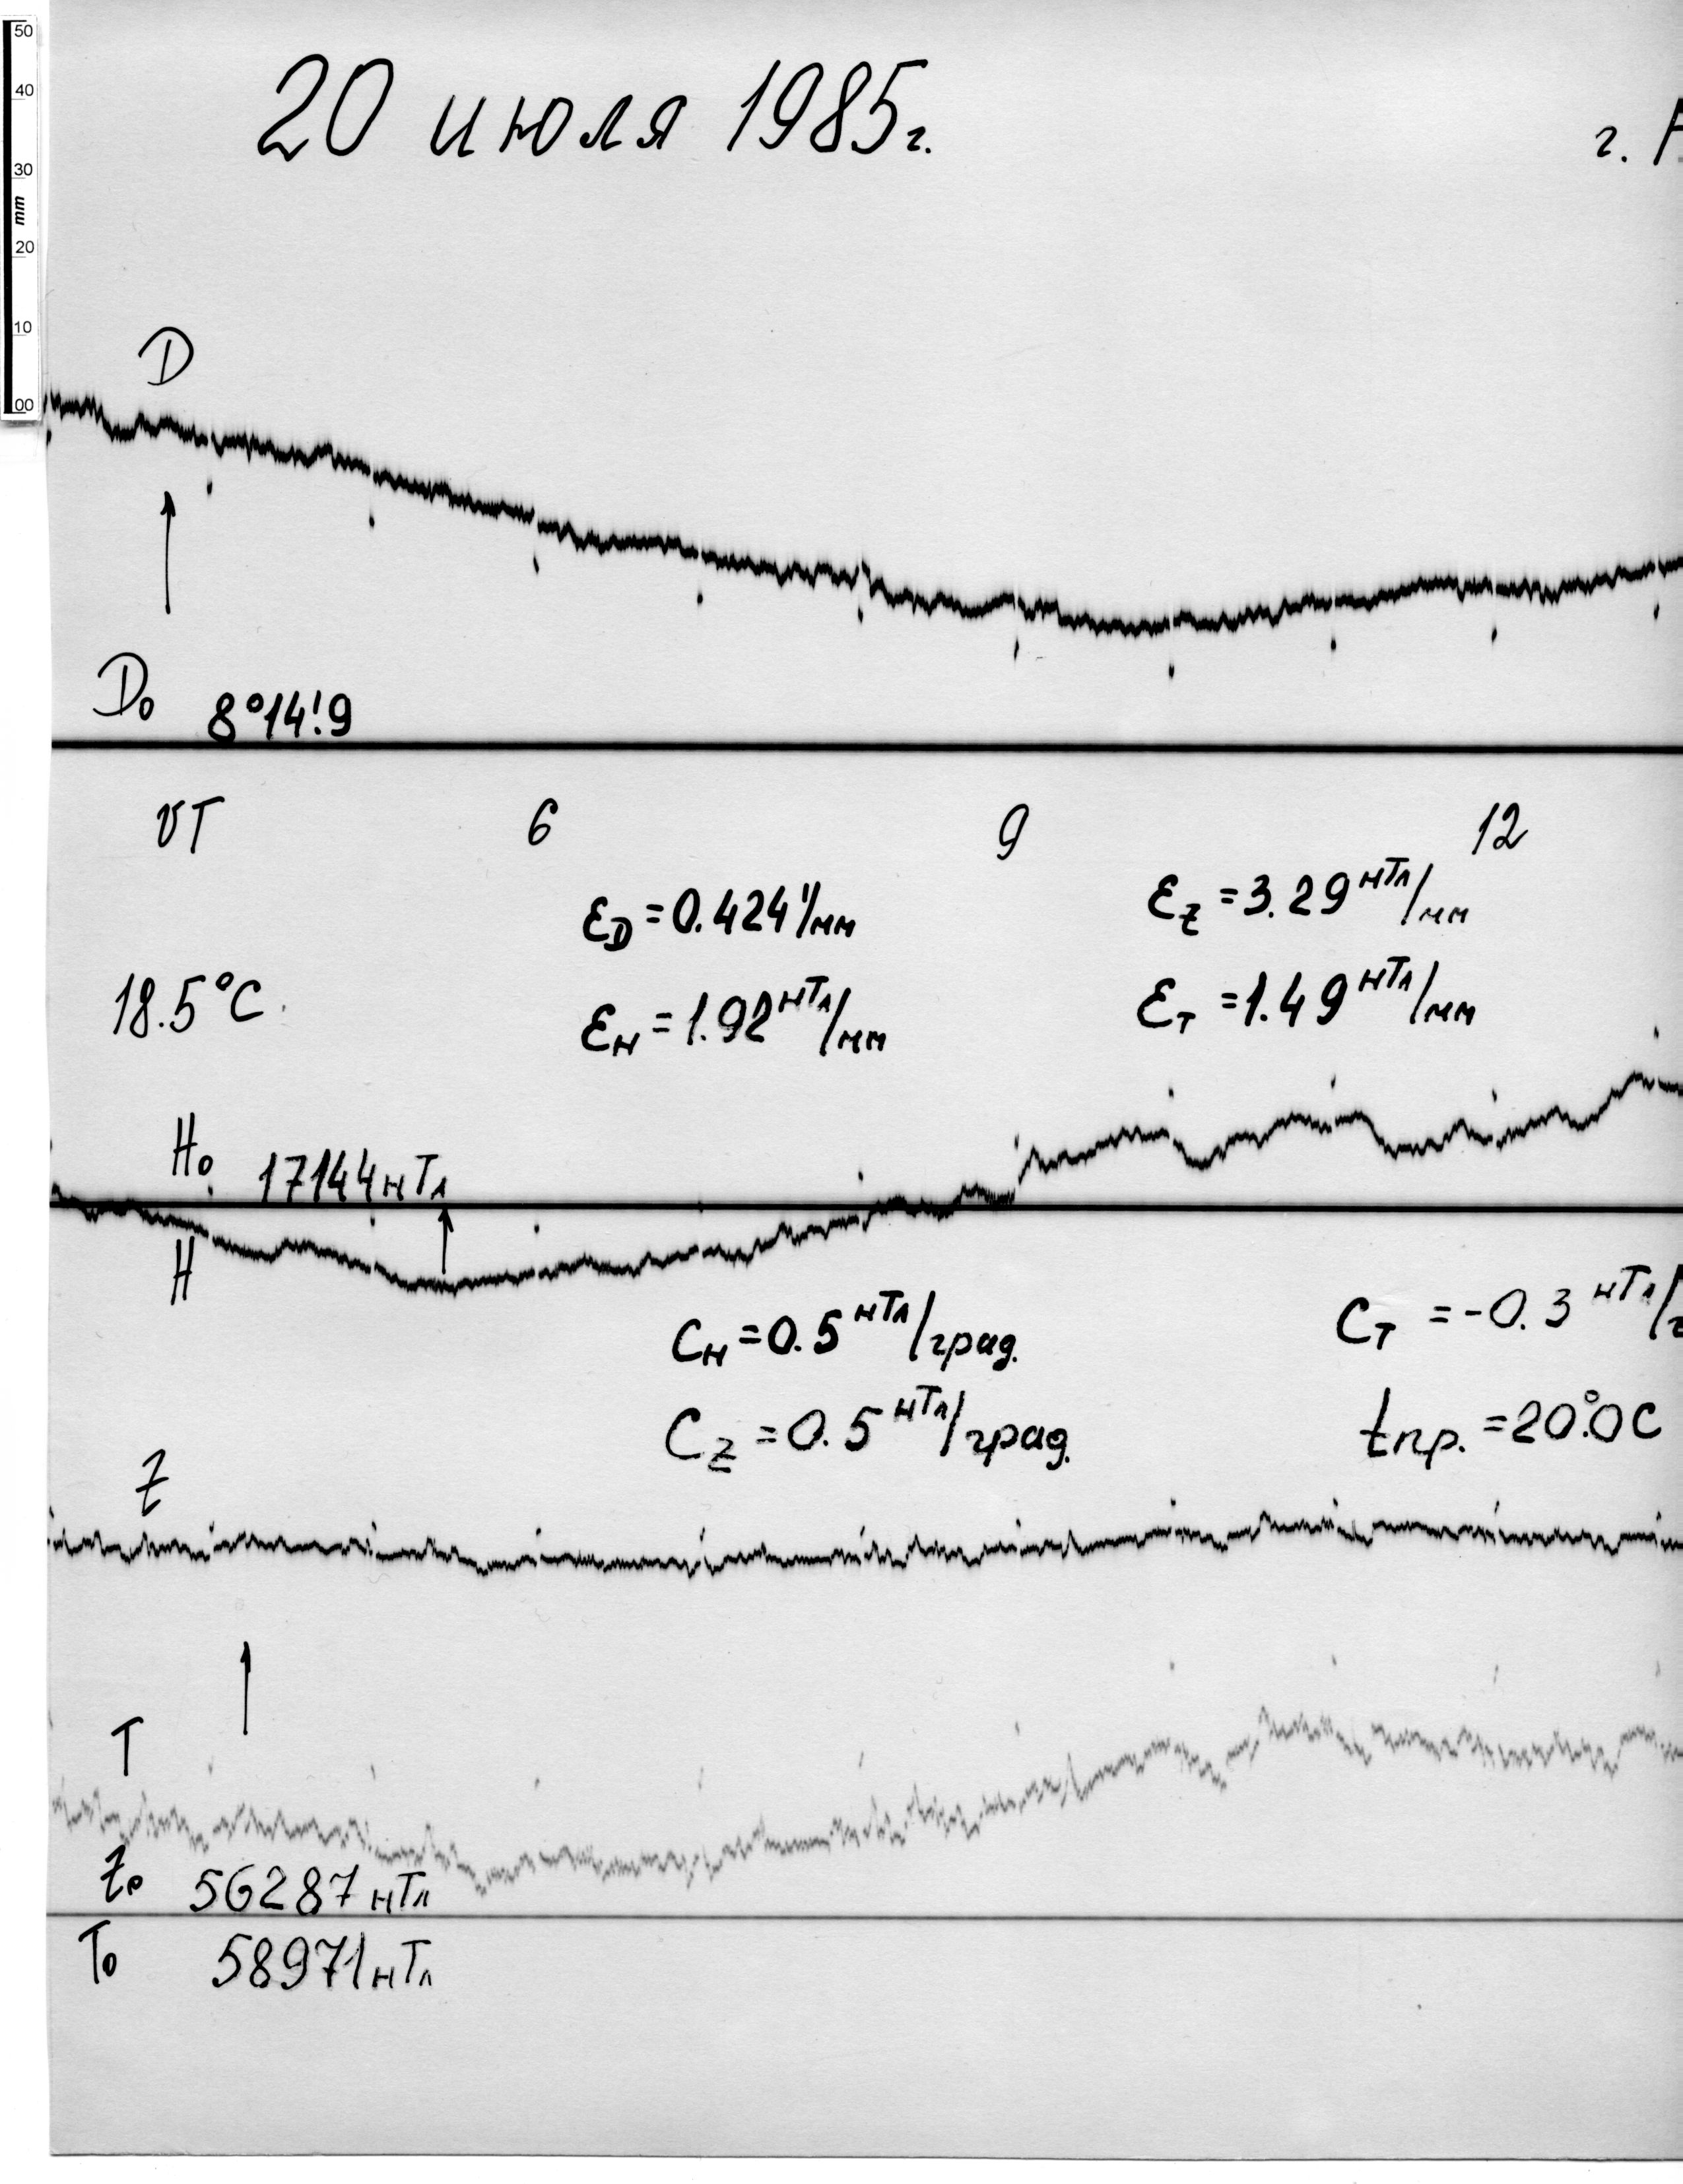 50
40
30
mm
20
10
00
20 июля 1985г.
г.
D
D₀ 8°14'.9
UT 6 9 12
ε_D = 0.424'/мм
ε_Z = 3.29 нТл/мм
18.5°C
ε_H = 1.92 нТл/мм
ε_T = 1.49 нТл/мм
H₀ 17144 нТл
H
C_H = 0.5 нТл/град.
C_T = -0.3 нТл/
C_Z = 0.5 нТл/град.
tпр. = 20°.0C
Z
T
Z₀ 56287 нТл
T₀ 58971 нТл